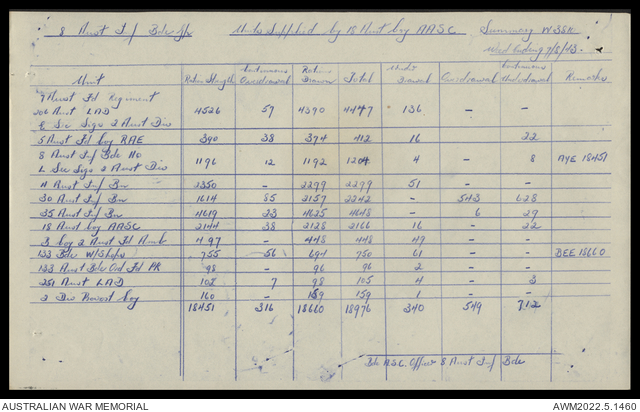 8 Aust Inf Bde Gp Units Supplied by 18 Aust Coy AASC Summary W 3811
Week Ending 7/8/43
Unit Ration Strength Continuous Overdrawal Rations Drawn Total Under Drawal Overdrawal Continuous Overdrawal Remarks
7 Aust Fd Regiment
206 Aust LAD 4526 57 4390 4447 136 - -
E Sec Sigs 2 Aust Div
5 Aust Fd Coy RAE 390 38 374 412 16 22
8 Aust Inf Bde HQ
L Sec Sigs 2 Aust Div 1196 12 1192 1204 4 - 8 AYE 18451
4 Aust Inf Bn 2350 - 2299 2299 51 - -
30 Aust Inf Bn 1614 85 2157 2242 - 543 628
35 Aust Inf Bn 4619 23 4625 4648 - 6 29
18 Aust Coy AASC 2144 38 2128 2166 16 - 22
3 Coy 2 Aust Fd Amb 497 - 448 448 49 - -
133 Bde W/Shops 755 56 694 750 61 - - BEE 18660
133 Aust Bde Ord Fd Pk 98 - 96 96 2 - -
251 Aust LAD 102 7 98 105 4 - 3
2 Div Provost Coy 160 - 159 159 1 - -
18451 316 18660 18976 340 549 712
Bde A.S.C. Officer 8 Aust Inf Bde
AUSTRALIAN WAR MEMORIAL AWM2022.5.1460